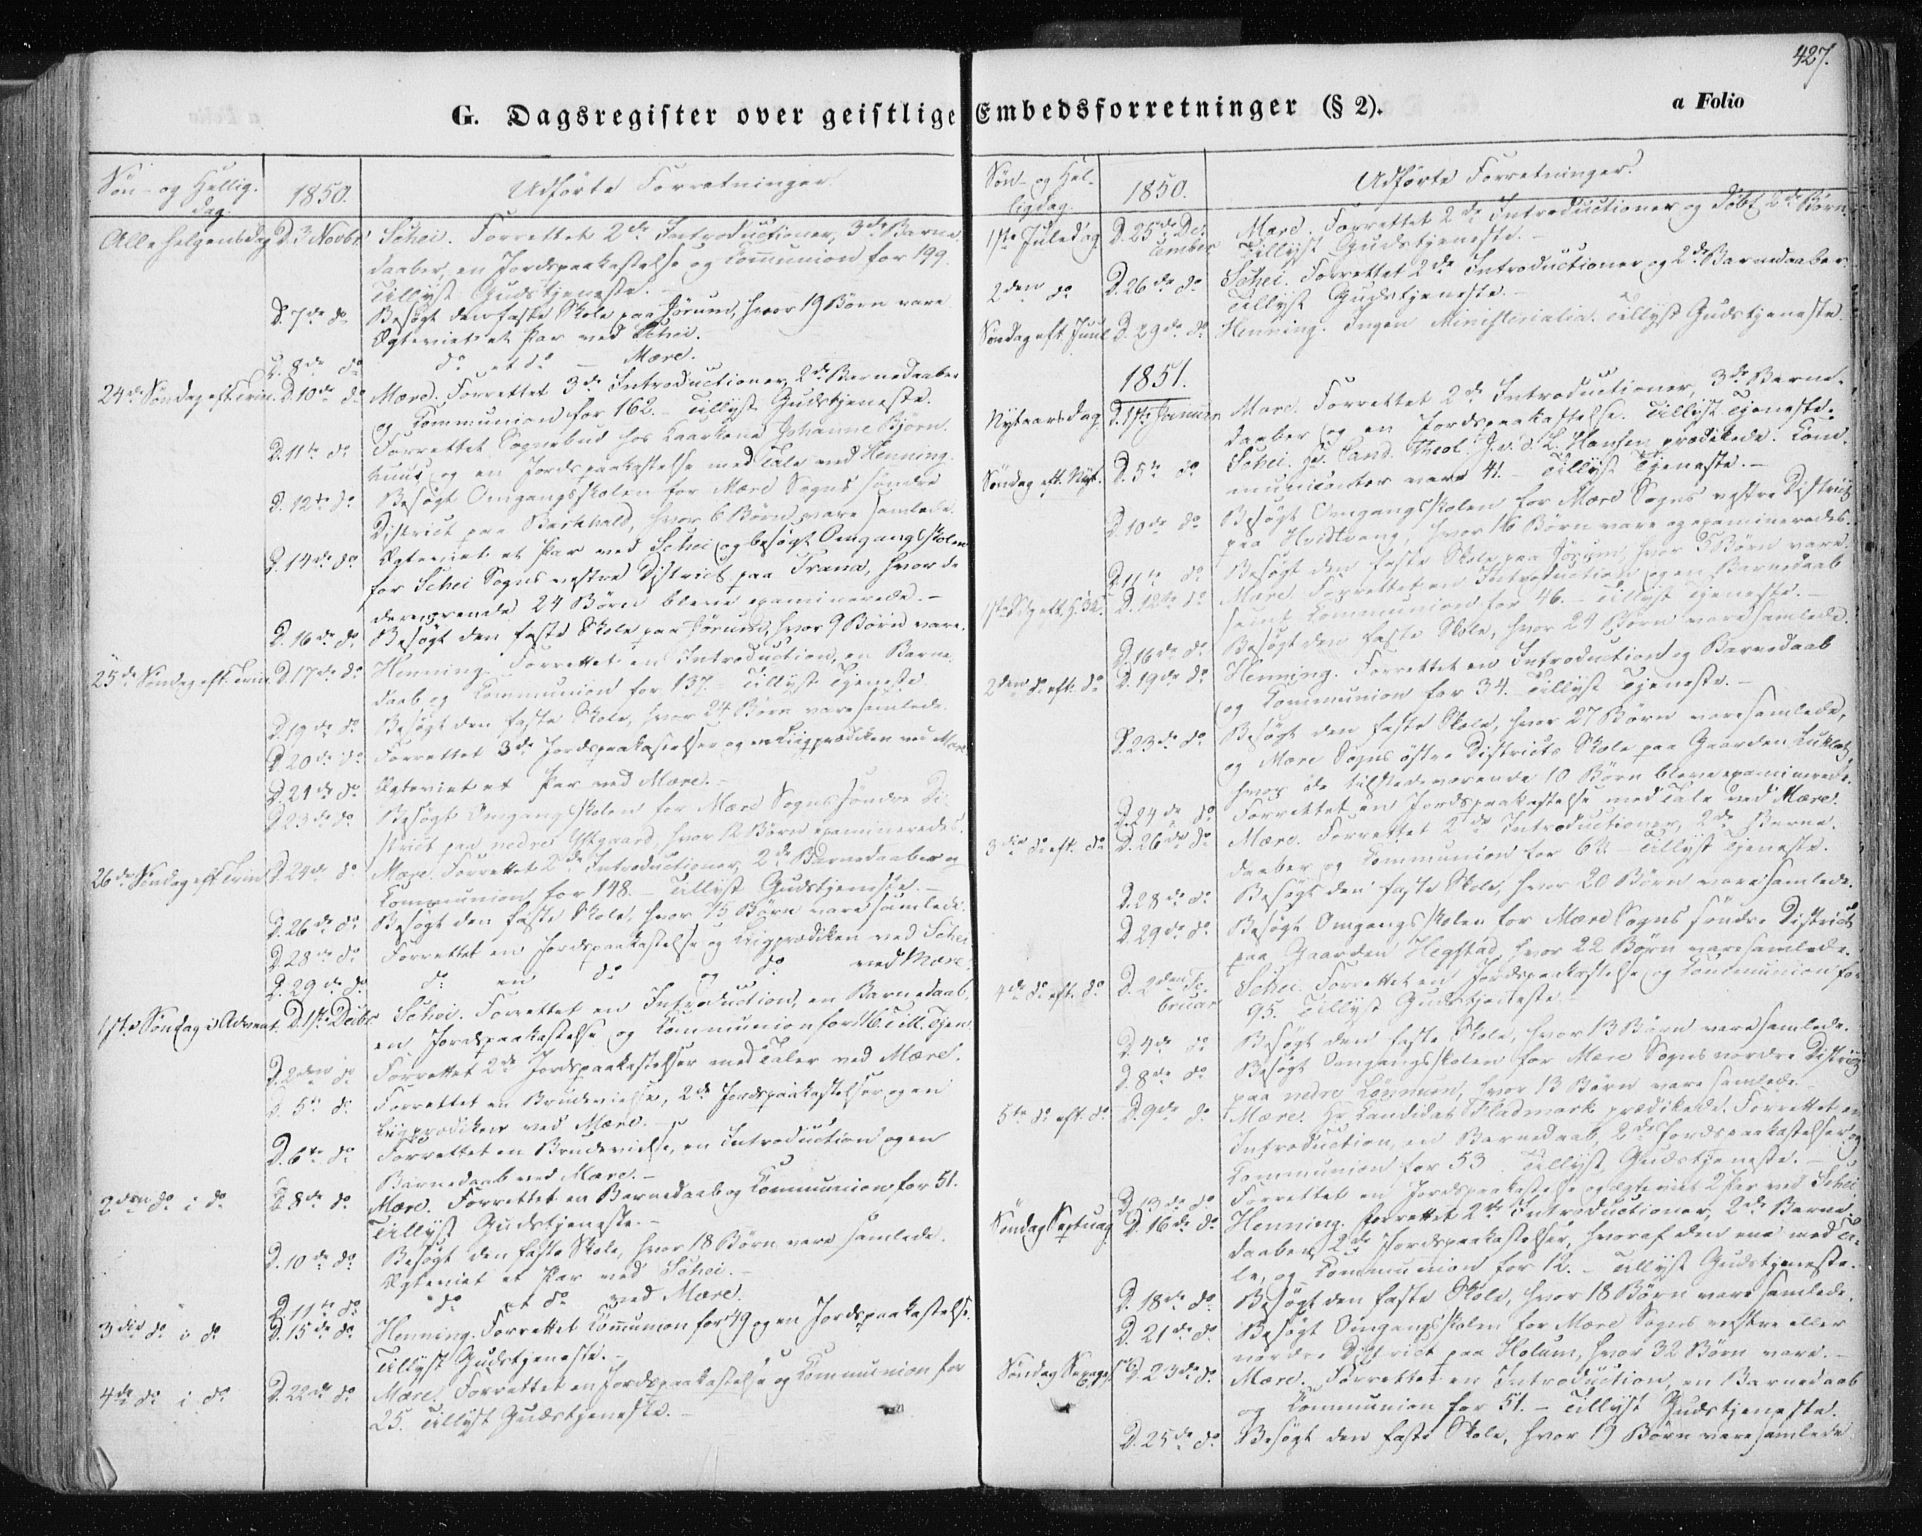 427.
G. Dagsregister over geistlige Embedsforretninger (§ 2).
a Folio
Søn- og Hellig-
dag.
1850.
Udførte Forretninger.
Alle Helgensdag D. 3 Novbr. Schei. Forrettet 2de Introductioner, 3de Barne-
daaber, en Jordspaakastelse og Communion for 199.
Tillyst Gudstjeneste.
D. 7de do Besøgt den faste Skole paa Jørum, hvor 19 Børn vare
Ægteviet et Par ved Schei.
D. 8de do do et do – Mære.
24de Søndag eft. Trin. D. 10de do Mære. Forrettet 3de Introductioner, 2de Barnedaaber
og Communion for 162. – Tillyst Gudstjeneste.
D. 11te do Forrettet Sognebud hos Johanne Bjørn-
og en Jordspaakastelse med Tale ved Henning.
D. 12te do Besøgt Omgangsskolen for Mære Sogns søndre
District paa hvor 6 Børn vare samlede.
D. 14de do Ægteviet et Par ved Schei og besøgt Omgangsskolen
for Schei Sogns vestre District paa Trana, hvor de
derværende 24 Børn bleve examinerede. –
D. 16de do Besøgt den faste Skole paa Jørum, hvor 9 Børn vare.
25de Søndag eft. Trin. D. 17de do Henning. Forrettet en Introduction, en Barne-
daab og Communion for 137. – Tillyst Tjeneste.
D. 19de do Besøgt den faste Skole, hvor 24 Børn vare samlede.
D. 20de do Forrettet 3de Jordspaakastelser og en Liigprædiken ved Mære
D. 21de do Ægteviet et Par ved Mære. –
D. 23de do Besøgt Omgangsskolen for Mære Sogns søndre Di-
strict paa nedre hvor 12 Børn examineredes.
26de Søndag eft. Trin. D. 24de do Mære. Forrettet 2de Introductioner, 2de Barnedaaber og
Communion for 148. – Tillyst Gudstjeneste. –
D. 26de do Besøgt den faste Skole, hvor 15 Børn vare samlede.
D. 28de do Forrettet en Jordspaakastelse og Liigprædiken ved Schei
D. 29de do do en do og do ved Mære.
1ste Søndag i Advent. D. 1ste Decbr Schei. Forrettet en Introduction, en Barnedaab,
en Jordspaakastelse og Communion for 116. Till. Tjen.
D. 2den do Forrettet 2de Jordspaakastelser med Taler ved Mære.
D. 5te do Forrettet en Brudevielse, 2de Jordspaakastelser og en
Liigprædiken ved Mære. –
D. 6te do Forrettet en Brudevielse, en Introduction og en
Barnedaab ved Mære. –
2den do i do D. 8de do Mære. Forrettet en Barnedaab og Communion for 51.
Tillyst Gudstjeneste. –
D. 10de do Besøgt den faste Skole, hvor 18 Børn vare samlede.
Ægteviet et Par ved Schei. –
D. 11te do do et do ved Mære.
3die do i do D. 15de do Henning. Forrettet Communion for 49 og en Jordspaakastelse.
Tillyst Gudstjeneste. –
4de do i do D. 22de do Mære. Forrettet en Jordspaakastelse og Communion for
25. Tillyst Gudstjeneste. –
Søn- og Hel-
ligdag.
1850.
Udførte Forretninger.
1ste Juledag D. 25de De- Mære. Forrettet 2de Introductioner og døbt 2de Børn
cember Tillyst Gudstjeneste. –
2den do D. 26de do Schei. Forrettet 2de Introductioner og 2de Barnedaaber.
Tillyst Gudstjeneste. –
Søndag eft. Juul D. 29de do Henning. Ingen Ministerialia. Tillyst Gudstjeneste.
1851.
Nytaarsdag D. 1ste Januar Mære. Forrettet 2de Introductioner, 3de Barne-
daaber og en Jordspaakastelse. Tillyst Tjeneste.
Søndag eft. Nyt. D. 5te do Schei. Hr. Cand. Theol. Hansen prædikede. Com-
municanter vare 41. – Tillyst Tjeneste. –
D. 10de do Besøgt Omgangsskolen for Mære Sogns vestre District
paa hvor 16 Børn vare og examineredes.
D. 11te do Besøgt den faste Skole paa Jørum, hvor 5 Børn vare.
D. 12te do Mære. Forrettet en Introduction og en Barnedaab
samt Communion for 46. – Tillyst Tjeneste. –
D. 16de do Besøgt den faste Skole, hvor 24 Børn vare samlede.
2den do eft. do D. 19de do Henning. Forrettet en Introduction og Barnedaab
og Communion for 34. – Tillyst Tjeneste. –
D. 23de do Besøgt den faste Skole, hvor 27 Børn vare samlede,
og Mære Sogns østre Districts Skole paa Gaarden
hvor de tilstedeværende 10 Børn bleve examinerede.
D. 24de do Forrettet en Jordspaakastelse med Tale ved Mære.
3die do eft. do D. 26de do Mære. Forrettet 2de Introductioner, 2de Barne-
daaber og Communion for 62. – Tillyst Tjeneste.
D. 28de do Besøgt den faste Skole, hvor 20 Børn vare samlede.
D. 29de do Besøgt Omgangsskolen for Mære Sogns søndre District
paa Gaarden Hegstad, hvor 22 Børn vare samlede.
4de do eft. do D. 2den Fe- Schei. Forrettet en Jordspaakastelse og Communion for
bruar 95. Tillyst Gudstjeneste. –
D. 4de do Besøgt den faste Skole, hvor 13 Børn vare samlede.
D. 8de do Besøgt Omgangsskolen for Mære Sogns nordre District
paa nedre hvor 13 Børn vare samlede. –
5te do eft. do D. 9de do Mære. Hr Candidat Fladmark prædikede. Forrettet en
Introduction, en Barnedaab, 2de Jordspaakastelser og
Communion for 53. Tillyst Gudstjeneste. –
D. 13de do Forrettet en Jordspaakastelse og ægteviet 2 Par ved Schei
Søndag Septuag. D. 16de do Henning. Forrettet 2de Introductioner, 2de Barne-
daaber, 2de Jordspaakastelser, hvoraf den ene med Ta-
le, og Communion for 12. – Tillyst Gudstjeneste.
D. 18de do Besøgt den faste Skole, hvor 18 Børn vare samlede.
D. 21de do Besøgt Omgangsskolen for Mære Sogns vestre eller
nordre District paa Holum, hvor 32 Børn vare. –
Søndag Sexages. D. 23de do Mære. Forrettet en Introduction, en Barnedaab
og Communion for 51. – Tillyst Gudstjeneste.
D. 25de do Besøgt den faste Skole, hvor 19 Børn vare samlede